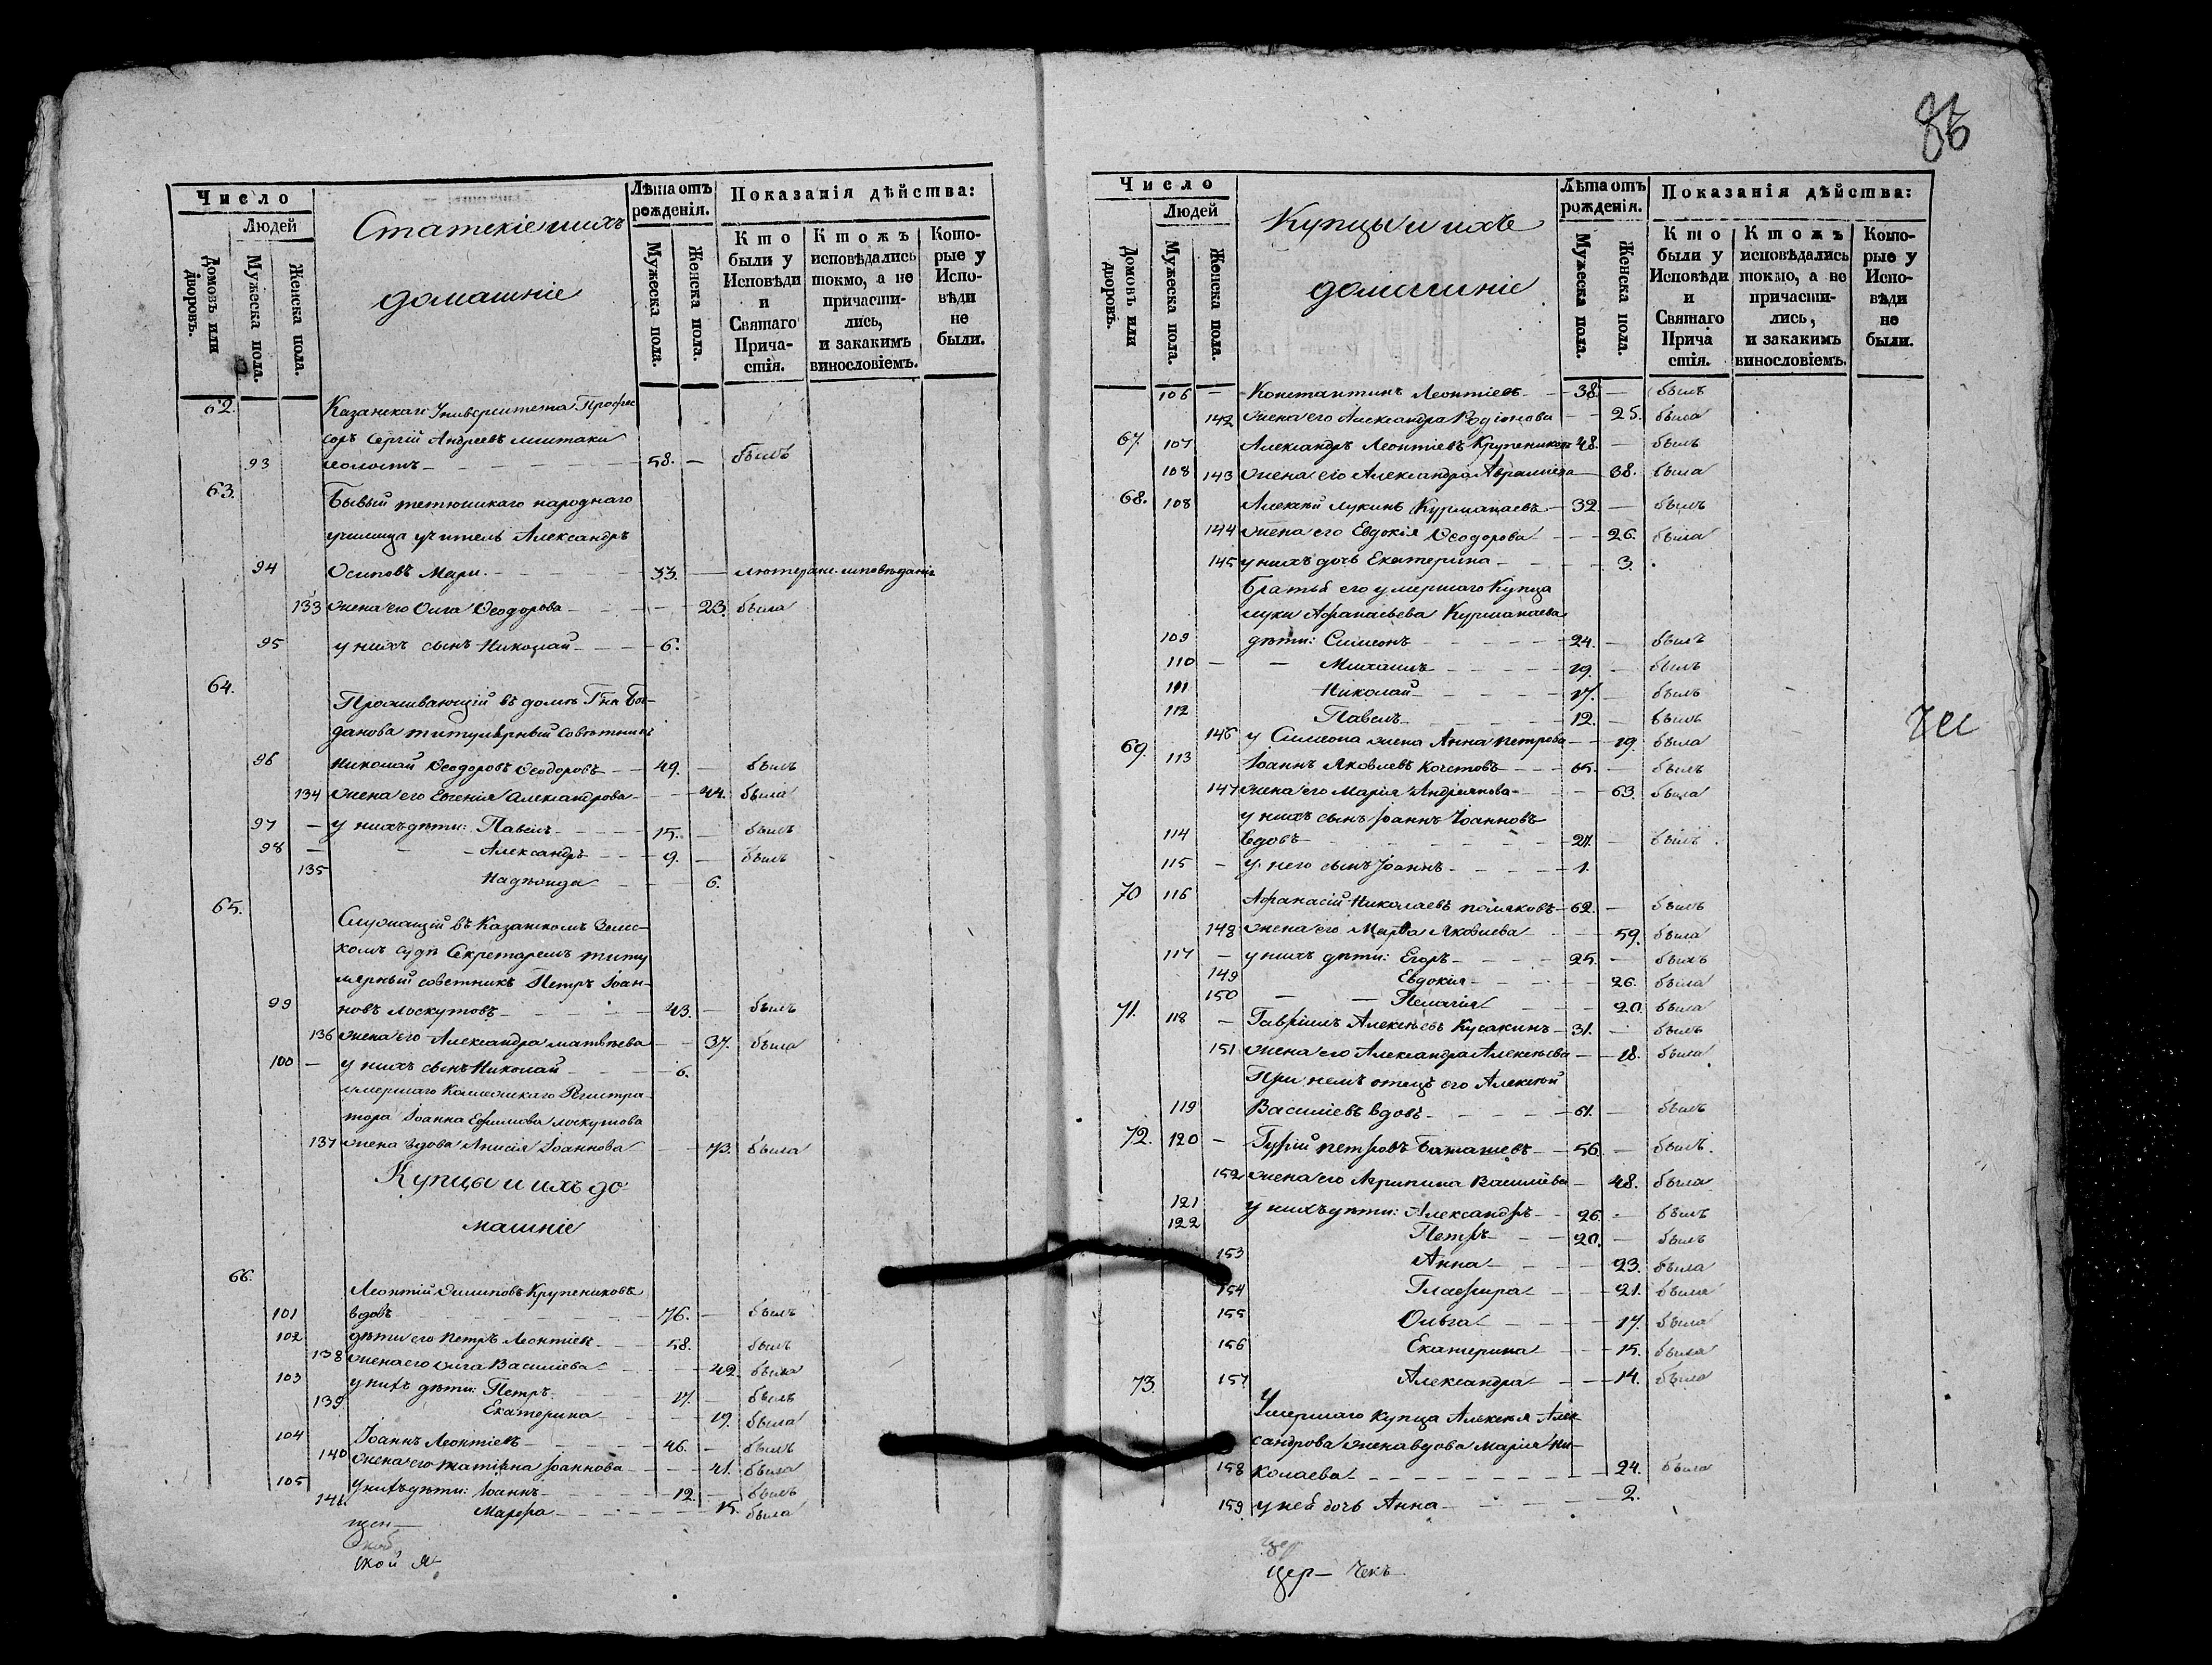 86
Число
Людей
Домовъ или дворовъ.
Мужеска пола.
Женска пола.
Статскіе и ихъ
домашніе
Лѣта отъ рожденія.
Мужеска пола.
Женска пола.
Показанія дѣйства:
Кто были у Исповѣди и Святаго Причастія.
Ктожъ исповѣдались токмо, а не причастились, и закакимъ винословіемъ.
Которые у Исповѣди не были.
62. Казанскаго Университета Профес
соръ Сергій Андреевъ
93 58. — былъ
63. Бывый тетюшскаго народнаго
училища учитель Александръ
94 Осиповъ 33. — лютеранс. исповѣданія
133 жена его Олга Ѳеодорова 23. была
95 у нихъ сынъ Николай 6.
64. Проживающій въ домѣ Г-на Бог-
данова титулярный совѣтникъ
96 Николай Ѳеодоровъ Ѳеодоровъ 49. — былъ
134 жена его Евгенія Александрова 44. была
97 — у нихъ дѣти: Павелъ 15. — былъ
98 — Александръ 9. — былъ
135 Надѣжда 6.
65. Служащій въ Казанскомъ Земс-
комъ судѣ Секретаремъ титу
лярный советникъ Петръ Іоан-
99 новъ Лоскутовъ 43. — былъ
136 жена его Александра Матвѣева 37. была
100 — у нихъ сынъ Николай 6.
умершаго Коллежскаго Регистра-
тора Іоанна Ефимова Лоскутова
137 жена вдова Анисія Іоаннова 73. была
Купцы и ихъ до-
машніе
66. Леонтій Филиповъ Крупениковъ
101 вдовъ 76. — былъ
102 дѣти его Петръ Леонтіевъ 58. былъ
138 жена его Олга Василіева 42. была
103 у нихъ дѣти: Петръ 17. — былъ
139 Екатерина 19. была
104 Іоаннъ Леонтіевъ 46. — былъ
140 жена его Татіана Іоаннова 41. была
105 у нихъ дѣти: Іоаннъ 12. — былъ
141 Марѳа 15. была
ской я
Число
Людей
Домовъ или дворовъ.
Мужеска пола.
Женска пола.
Купцы и ихъ
домашніе
Лѣта отъ рожденія.
Мужеска пола.
Женска пола.
Показанія дѣйства:
Кто были у Исповѣди и Святаго Прича стія.
Ктожъ исповѣдались токмо, а не причастились, и закакимъ винословіемъ.
Которые у Исповѣди не были.
106 — Константинъ Леонтіевъ 38. — былъ
142 жена его Александра Родіонова 25. была
67. 107 Александръ Леонтіевъ Крупениковъ 48. — былъ
108 143 жена его Александра Авраміева 38. была
68. 108 Алексѣй Лукинъ Курманаевъ 32. — былъ
144 жена его Евдокія Ѳеодорова 26. была
145 у нихъ дочь Екатерина 3.
Братья его умершаго Купца
Луки Афанасьева Курманаева
109 дѣти: Симеонъ 24. — былъ
110 — — Михаилъ 19. — былъ
111 Николай 17. — былъ
112 Павелъ 12. — былъ
146 у Симеона жена Анна Петрова 19. была
69. 113 Іоаннъ Яковлевъ 65. — былъ
147 жена его Марія Андріянова 63. была
у нихъ сынъ Іоаннъ Іоанновъ
114 вдовъ 27. — былъ
115 — у него сынъ Іоаннъ 1.
70 116 Афанасій Николаевъ Поляковъ 62. — былъ
148 жена его Марѳа Яковлева 59. была
117 — у нихъ дѣти: Егоръ 25. — былъ
149 Евдокія 26. была
150 — — Пелагія 20. была
71. 118 — Гавріилъ Алексѣевъ Кусакинъ 31. — былъ
151 жена его Александра Алексѣева 18. была
При немъ отецъ его Алексѣй
119 Василіевъ вдовъ 61. — былъ
72. 120 — Гурій Петровъ Баташевъ 56. — былъ
152 жена его Агрипина Василіева 48. была
121 у нихъ дѣти: Александръ 26. — былъ
122 Петръ 20. — былъ
153 Анна 23. была
154 Глафира 21. была
155 Ольга 17. была
156 Екатерина 15. была
157 Александра 14. была
73. Умершаго купца Алексѣя Алек-
сандрова жена вдова Марія Ни-
158 колаева 24. была
159 у неё дочь Анна 2.
цер
цер—